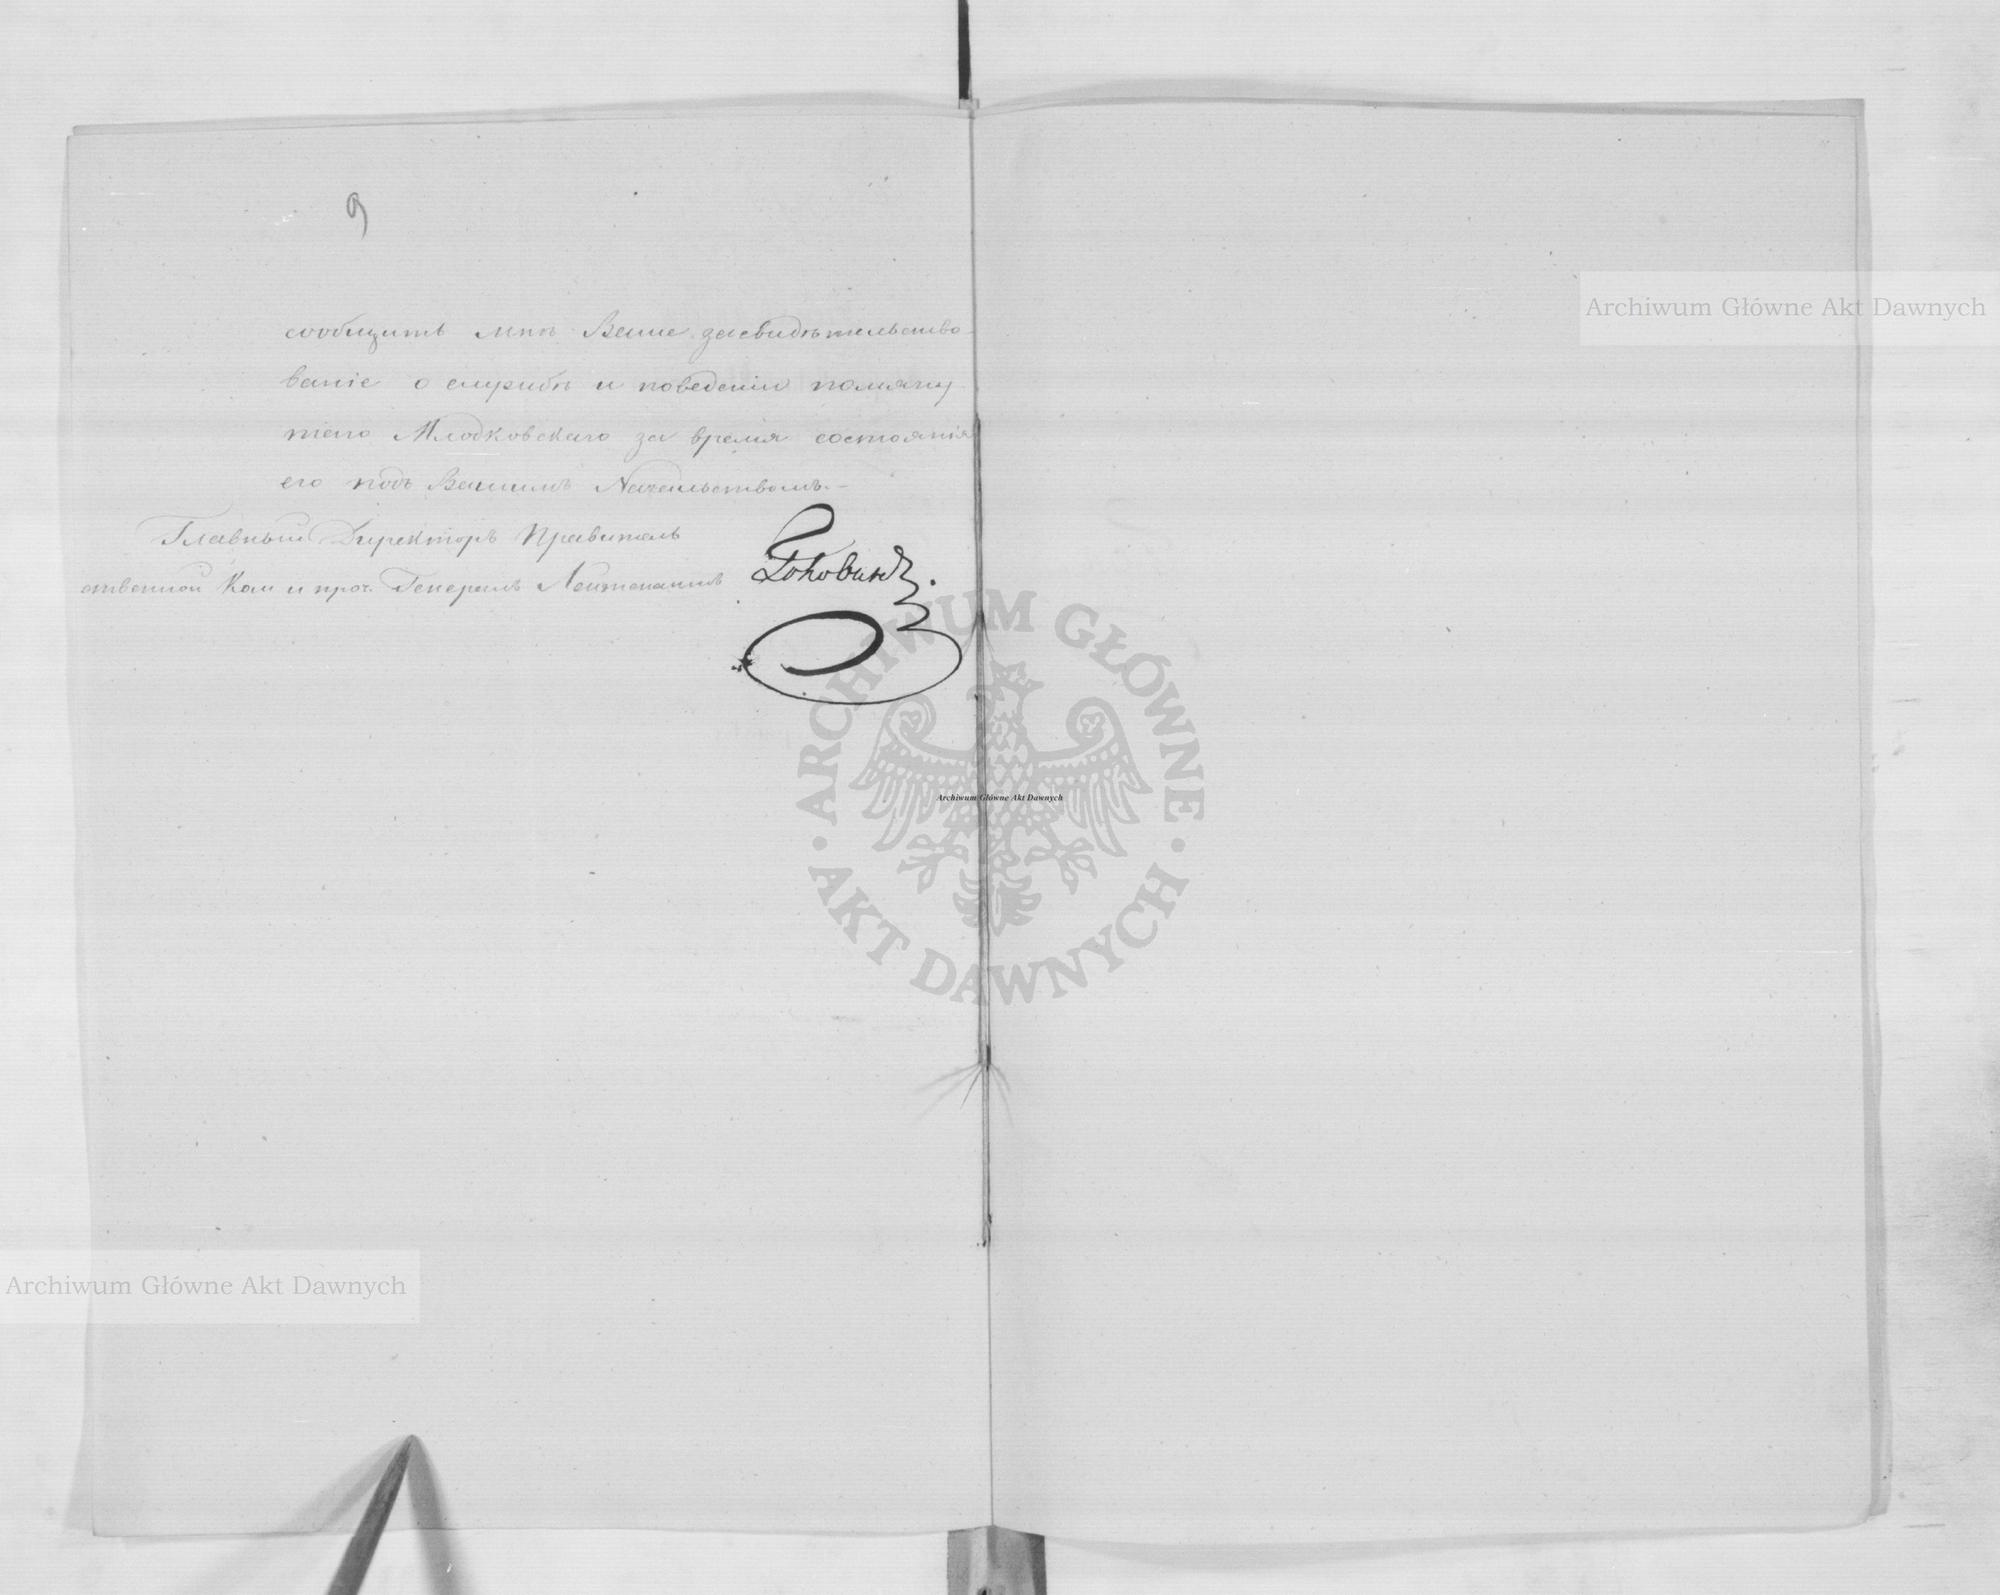 9
сообщить мнѣ Ваше засвидѣтельство-
ваніе о службѣ и поведеніи помяну-
таго Млодковскаго за время состоянія
его подъ Вашимъ Начальствомъ.—
Главный Директоръ Правитель
ственной Ком и проч. Генералъ Лейтенантъ
Головинъ.
Archiwum Główne Akt Dawnych
ARCHIWUM GŁÓWNE
· AKT DAWNYCH ·
Archiwum Główne Akt Dawnych
Archiwum Główne Akt Dawnych